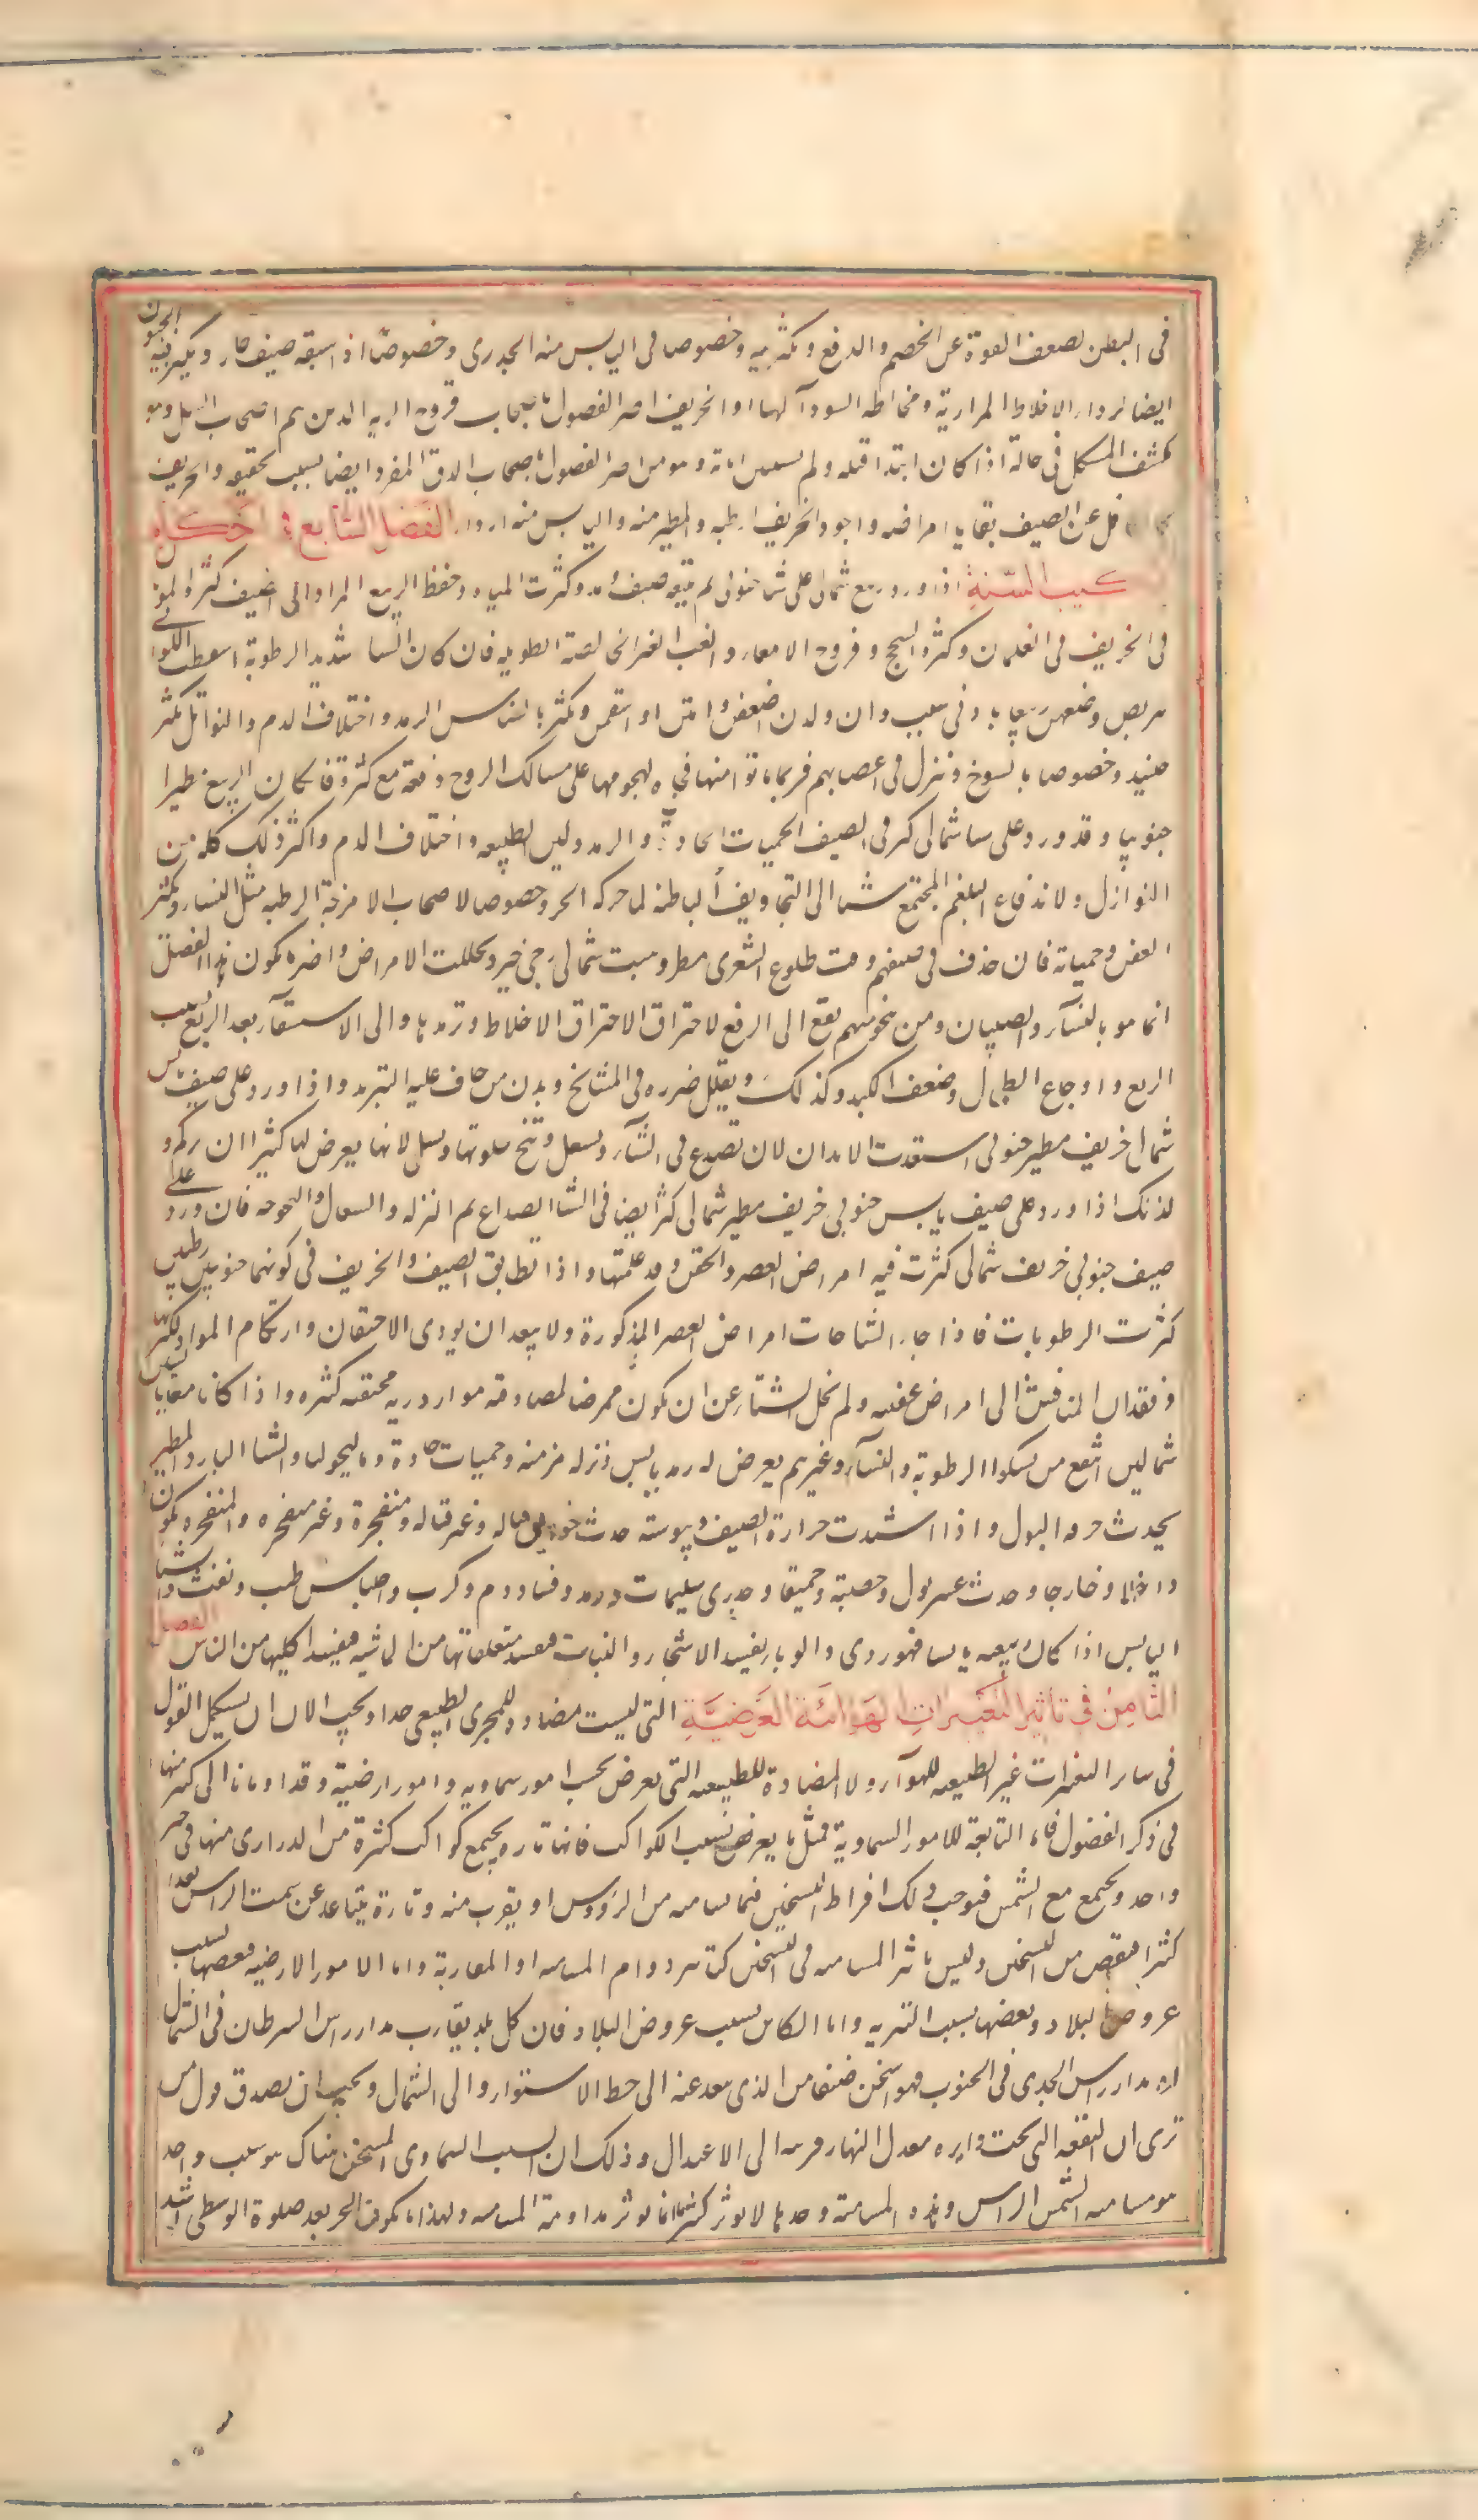 فى البطن لضعف القوة عن الهضم والدفع ويكثر فيه وخصوصا فى اليابس منه الجدرى وخصوصا اذا سبقه صيف حار ويكثر فيه الجنون
ايضا لرداءة الاخلاط المرارية ومخالطة السوداء لها والخريف اضر الفصول باصحاب قروح الرية الذين هم اصحاب السل وهو
يكشف المشكل فى حاله اذا كان ابتدا قبله ولم يستبن اياته وهو من اضر الفصول باصحاب الدق المفرد ايضا بسبب تجفيفه والخريف
كالكافل عن الصيف بقايا امراضه واجود الخريف ارطبه والمطير منه واليابس منه اردا الفصل السابع فى احكام
تركيب السنة اذا ورد ربيع شمالى على شتاء جنوبى ثم تبعه صيف ومد وكثرت المياه وحفظ الربيع المواد الى الصيف كثر الموتان
فى الخريف فى الغلمان وكثر السحج وقروح الامعاء والغب الغير الخالصة الطويلة فان كان الشتا شديد الرطوبة اسقطت اللواتى
يتربصن وضعهن ربيعا بادنى سبب وان ولدن اضعفن وامتن او اسقمن ويكثر بالناس الرمد واختلاف الدم والنوازل تكثر
حينئذ وخصوصا بالشيوخ وتنزل فى اعصابهم فربما ماتوا منها فجاة لهجومها على مسالك الروح دفعة مع كثرة فان كان الربيع مطيرا
جنوبيا وقد ورد على شتا شمالى كثر فى الصيف الحميات الحادة والرمد ولين الطبيعه واختلاف الدم واكثر ذلك كله من
النوازل ولاندفاع البلغم المجتمع شتا الى التجاويف الباطنه لما حركه الحر وخصوصا لاصحاب الامزجة الرطبه مثل النساء ويكثر
العفن وحمياته فان حدث فى صيفهم وقت طلوع الشعرى مطر وهبت شمالى رجى خير وتحللت الامراض واضره يكون هذا الفصل
انما هو بالنساء والصبيان ومن ينجو منهم يقع الى الربع لاحتراق الاخلاط وترمدها والى الاستسقاء بعد الربع بسبب
الربع واوجاع الطحال وضعف الكبد وكذلك ويقلل ضرره فى المشايخ وبدن من يخاف عليه التبريد واذا ورد على صيف يابس
شمالى خريف مطير جنوبى استعدت الابدان لان تصدع فى الشتاء وتسعل وتبح حلوقها وتسل لانها يعرض لها كثيرا ان تزكم و
لذلك اذا ورد على صيف يابس جنوبى خريف مطير شمالى كثر ايضا فى الشتا الصداع ثم النزله والسعال والبحوحه فان ورد على
صيف جنوبى خريف شمالى كثرت فيه امراض العصر والحقن وقد علمتها واذا تطابق الصيف والخريف فى كونهما جنوبيين رطبين
كثرت الرطوبات فاذا جاء الشتا جات امراض العصر المذكورة ولا يبعد ان يودى الاحتقان وارتكام المواد لكثرتها
وفقدان المنافس الى امراض عفنيه ولم يخل الشتاء عن ان يكون ممرضا لمصادفته مواد رديه محتقنه كثيره واذا كانا معا يابسين
شماليين انتفع من يشكوا الرطوبة والنساء وغيرهم يعرض له رمد يابس ونزله مزمنه وحميات حادة وماليخوليا والشتا البارد المطير
يحدث حرقه البول واذا اشتدت حرارة الصيف ويبوسته حدث خوانيق قتاله وغير قتاله ومنفجرة وغير منفجره والمنفجره يكون
داخلا وخارجا وحدث عسر بول وحصبة وحميقا وجدرى سليمات ورمد وفساد دم وكرب واحتباس طمث ونفث والشتا
اليابس اذا كان ربيعه يابسا فهو ردى والوباء يفسد الاشجار والنبات فيفسد متعلقاتها من الماشيه فيفسد اكليها من الناس الفصل
الثامن فى تاثير التغيرات الهوائية العرضية التى ليست مضادة للمجرى الطبيعى جدا ويجب الان ان نستكمل القول
فى ساير التغيرات غير الطبيعيه للهوآء ولا المضادة للطبيعه التى تعرض بحسب امور سماويه وامور ارضية وقد اومانا الى كثير منها
فى ذكر الفصول فاما التابعة للامور السماوية فمثل ما يعرض بسبب الكواكب فانها تارة يجتمع كواكب كثيرة من الدرارى منها فى حيز
واحد ويجتمع مع الشمس فتوجب ذلك افراط التسخين فيما يسامته من الرؤوس او يقرب منه وتارة يتباعد عن سمت الراس بعدا
كثيرا فينقص من التسخين وليس تاثير المسامته فى التسخين كتاثير دوام المسامته او المقاربة واما الامور الارضيه فبعضها بسبب
عروض البلاد وبعضها بسبب التربه واما الكاين بسبب عروض البلاد فان كل بلد يقارب مدار راس السرطان فى الشمال
او مدار راس الجدى فى الجنوب فهو اسخن صيفا من الذى يبعد عنه الى خط الاستواء والى الشمال ويجب ان يصدق قول من
ترى ان البقعه التى تحت دايره معدل النهار قريبه الى الاعتدال وذلك ان السبب السماوى المسخن هناك هو سبب واحد
هو مسامته الشمس الراس وهذه المسامتة وحدها لا توثر كثيرا انما توثر مداومة المسامته ولهذا ما يكون الحر بعد صلوة الوسطى اشد